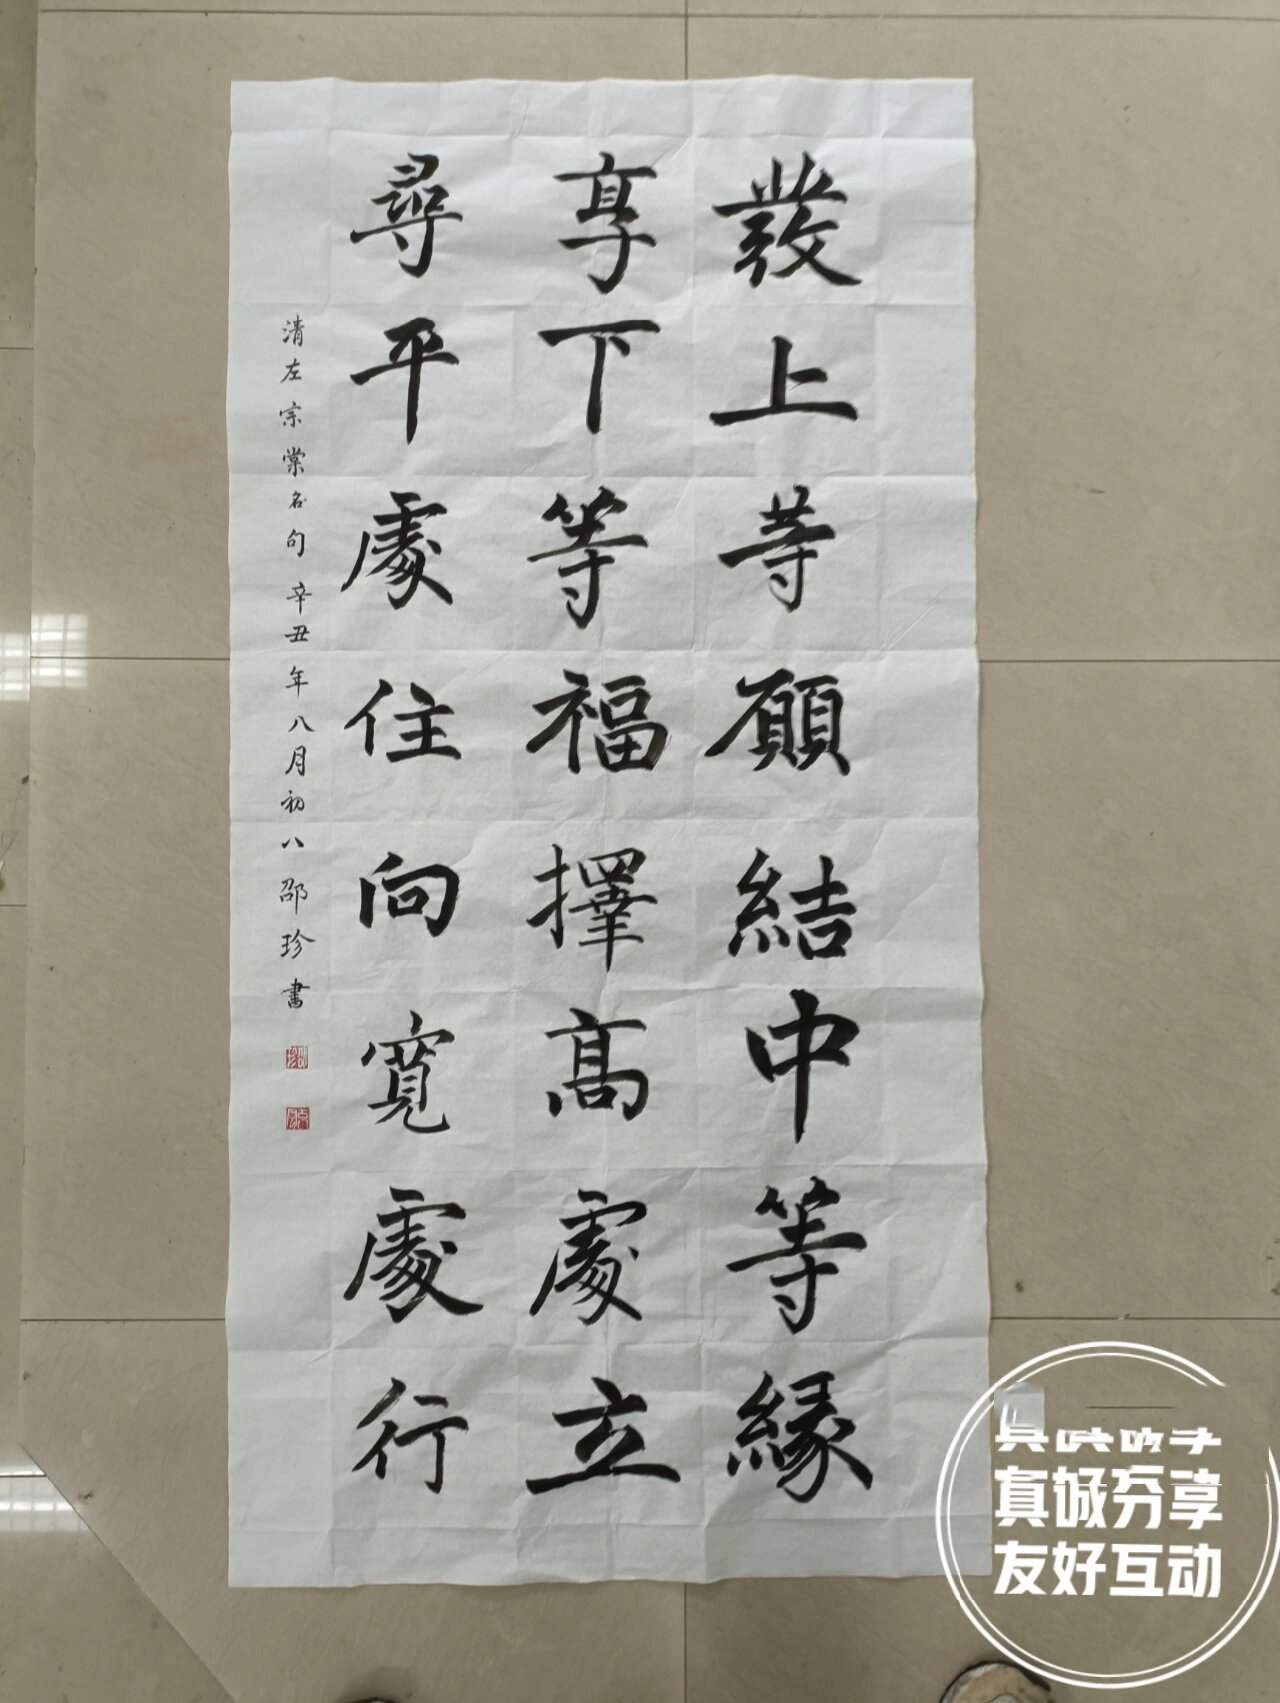 發上等願結中等緣
享下等福擇高處立
尋平處住向寬處行
清左宗棠名句辛丑年八月初八邵珍書
真诚分享
友好互动